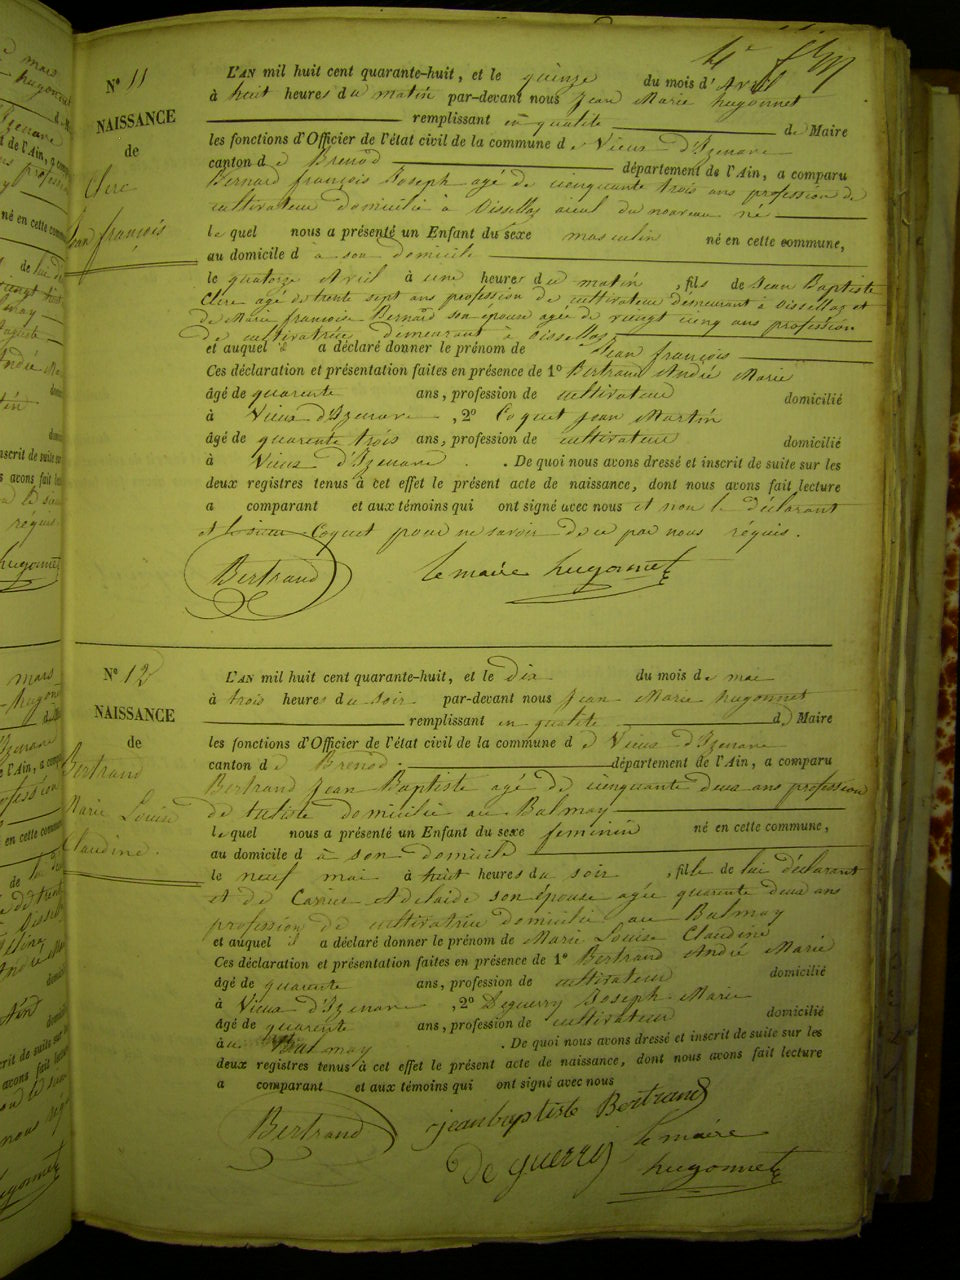 N° 11
NAISSANCE
de
Clerc
Jean françois
L'AN mil huit cent quarante-huit, et le quinze du mois d'Avril
à huit heures du matin par-devant nous Jean Marie hugonnet
remplissant en qualité de Maire
les fonctions d'Officier de l'état civil de la commune de Vieux d'Izenave
canton de Brenod département de l'Ain, a comparu
Bernard françois Joseph agé de cinquante trois ans profession de
cultivateur domicilié à Oissellaz aieul du nouveau né
lequel nous a présenté un Enfant du sexe masculin né en cette commune,
au domicile d à son domicile
le quatorze Avril à une heures du matin, fils de Jean Baptiste
Clerc agé de trente sept ans profession de cultivateur demeurant à Oissellaz et
de Marie françoise Bernard son épouse agée de vingt cinq ans profession
de cultivatrice demeurant à Oissellaz
et auquel il a déclaré donner le prénom de Jean françois
Ces déclaration et présentation faites en présence de 1° Bertrand André Marie
âgé de quarente ans, profession de cultivateur domicilié
à Vieux d'Izenave, 2° Coquet Jean Martin
âgé de quarente trois ans, profession de cultivateur domicilié
à Vieux d'Izenave. De quoi nous avons dressé et inscrit de suite sur les
deux registres tenus à cet effet le présent acte de naissance, dont nous avons fait lecture
a comparant et aux témoins qui ont signé avec nous et non le déclarant
et le sieur Coquet pour ne savoir de ce par nous réquis.
Bertrand le maire hugonnet
N° 12
NAISSANCE
de
Bertrand
Marie Louise
Claudine.
L'AN mil huit cent quarante-huit, et le Dix du mois de mai
à trois heures du soir par-devant nous Jean Marie hugonnet
remplissant en qualité de Maire
les fonctions d'Officier de l'état civil de la commune d e Vieux d'Izenave
canton de Brenod département de l'Ain, a comparu
Bertrand Jean Baptiste agé de cinquante deux ans profession
de domicilié au Balmay
lequel nous a présenté un Enfant du sexe feminin né en cette commune,
au domicile d à son domicile
le neuf mai à huit heures du soir, fille de lui déclarant
et de Adelaide son épouse agée quarente deux ans
profession de cultivatrice domiciliée au Balmay
et auquel il a déclaré donner le prénom de Marie Louise Claudine
Ces déclaration et présentation faites en présence de 1° Bertrand André Marie
âgé de quarente ans, profession de cultivateur domicilié
à Vieux d'Izenave, 2° Deguerry Joseph Marie
âgé de quarente ans, profession de cultivateur domicilié
au Balmay. De quoi nous avons dressé et inscrit de suite sur les
deux registres tenus à cet effet le présent acte de naissance, dont nous avons fait lecture
a comparant et aux témoins qui ont signé avec nous
Bertrand jeanbaptiste Bertrand
De guerry le maire
hugonnet